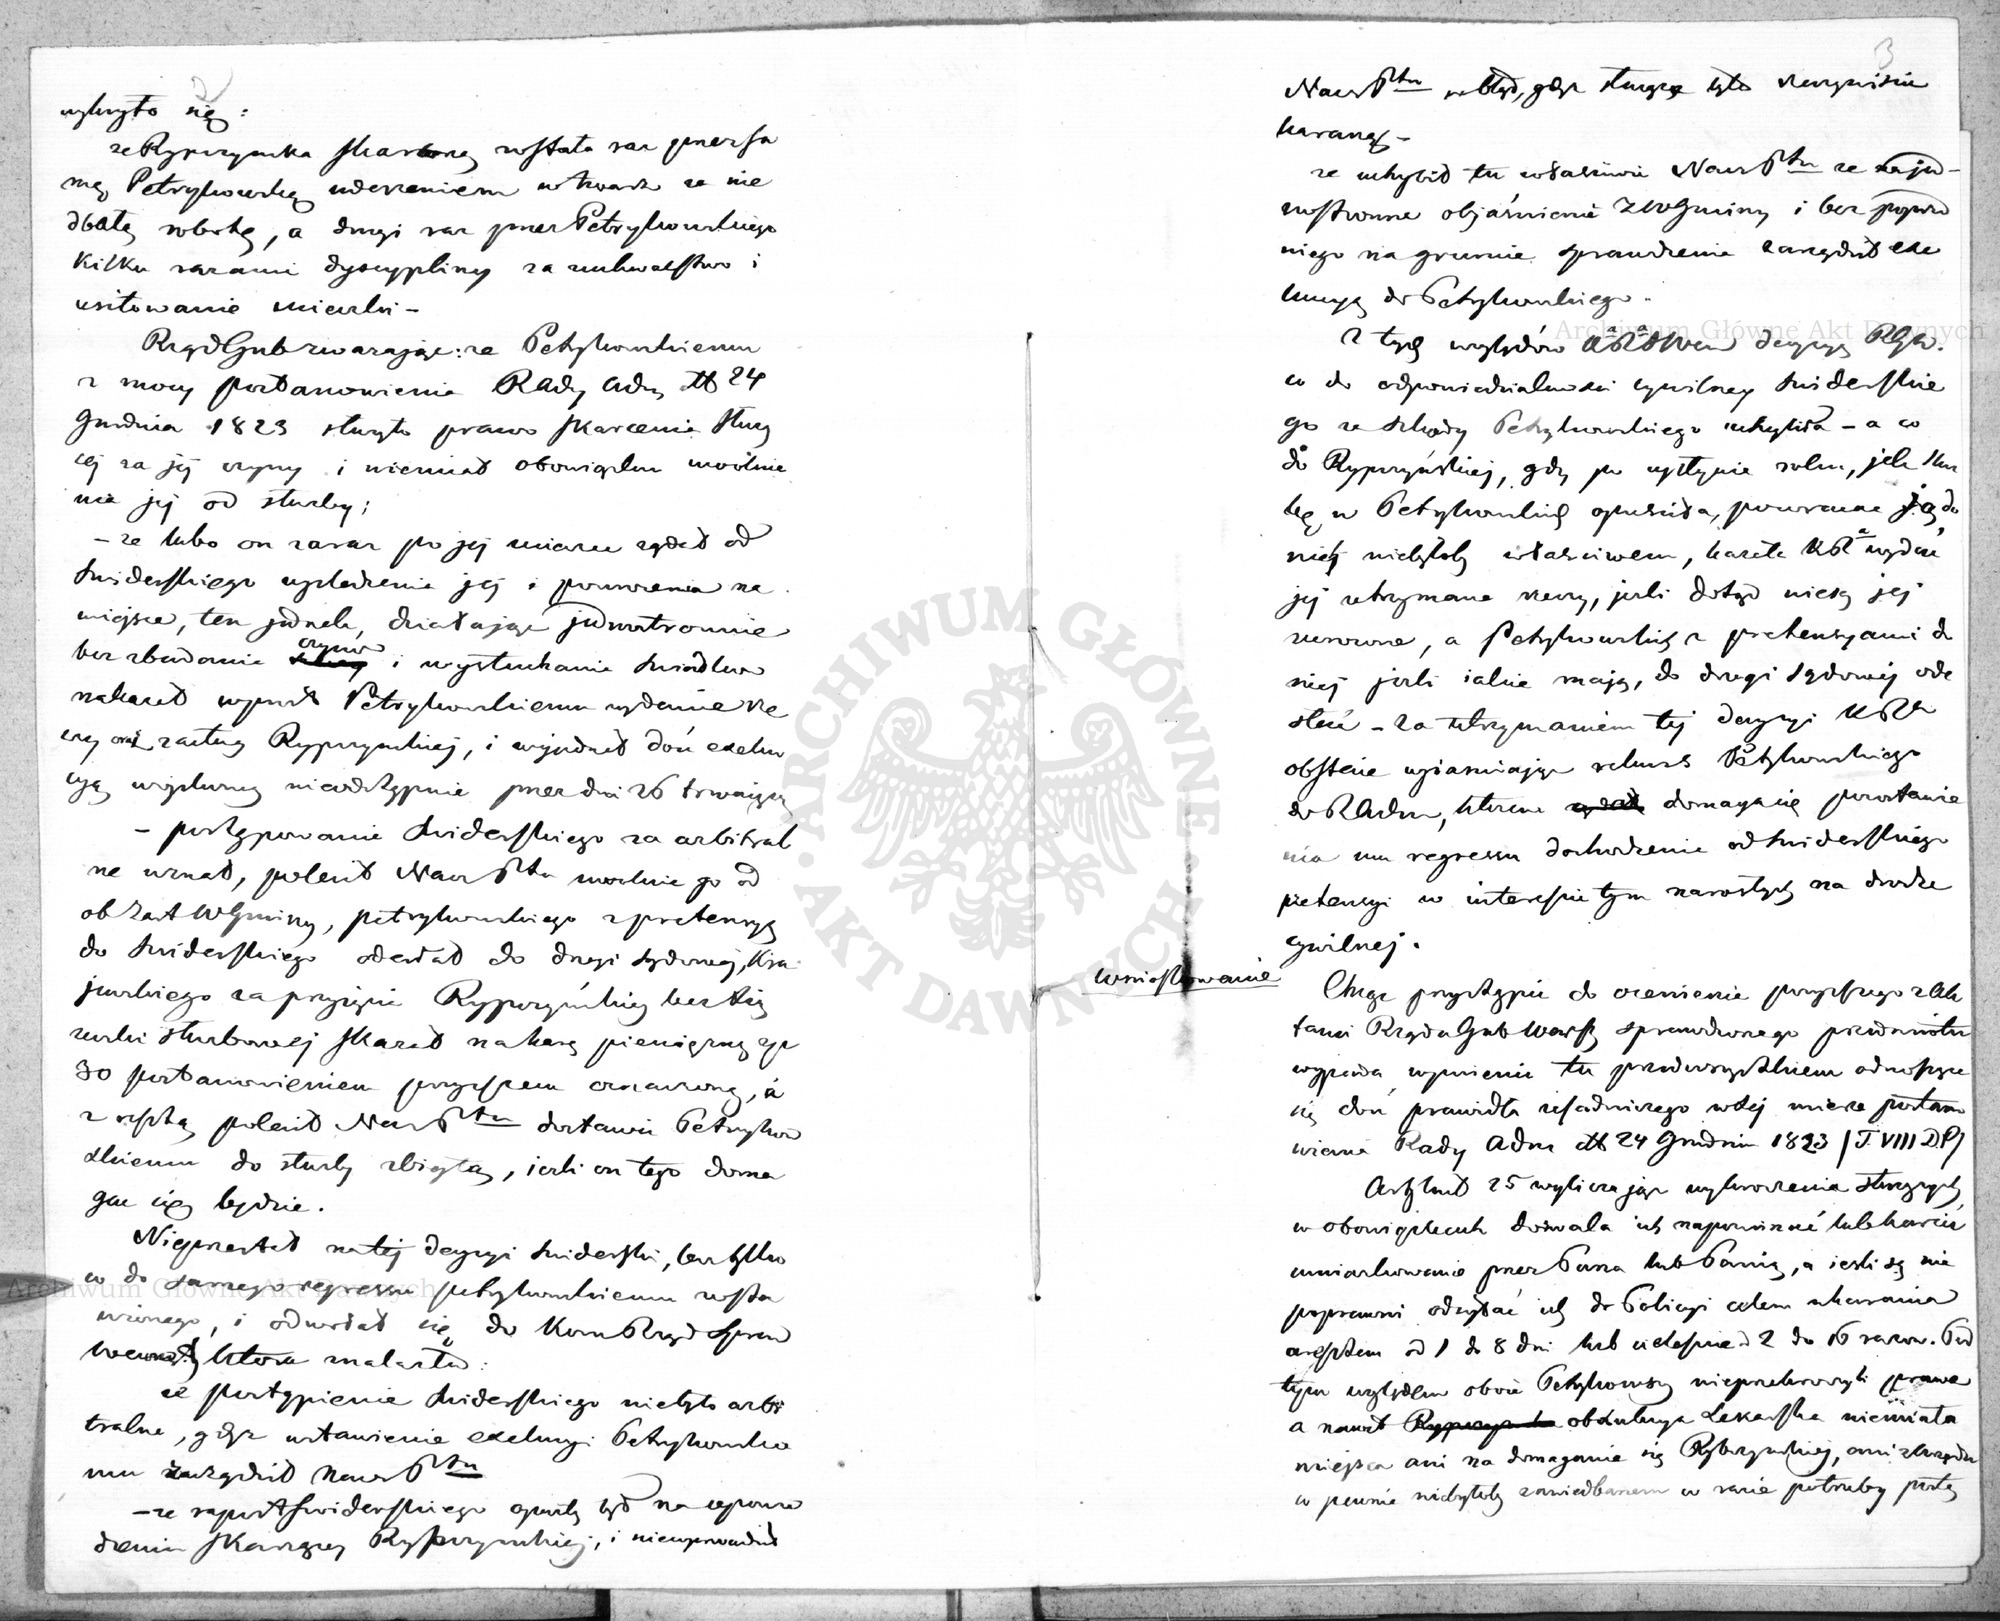 2
wykryto się:
że Rypczynska skarconą została raz przez sa
mą Petrykowską uderzeniem w twarz za nie
dbałą robotę, a drugi raz przez Petrykowskiego
kilku razami dyscypliny za zuchwalstwo i
usiłowanie ucieczki –
Rząd Gub zważając: że Petrykowskiemu
z mocy postanowienia Rady Adm dtt 24
Grudnia 1823 służyło prawo skarcenia służą
cej za jej czyny i niemiał obowiązku uwolnie
nia jej od służby;
– że lubo on zaraz po jej ucieczce żądał od
Swiderskiego wyśledzenia jej i powrócenia na
miejsce, ten jednak, działając jednostronnie
bez zbadania czynu i wysłuchania Swiadków
nakazał wprost Petrykowskiemu wydanie rze
czy oraz zasług Rypczynskiej, i wyjednał doń exeku
cyą wojskową nieodstępnie przez dni 26 trwającą
– postępowanie Swiderskiego za arbitral
ne uznał, polecił Nacz Ptu uwolnić go od
obżat WGminy, Petrykowskiego z pretensyą
do Swiderskiego odesłał do drogi sądowej, Kra
jewskiego za przyjęcie Rypczyńskiej bez Ksią
żeczki służbowej skazał na karę pieniężną rp
30 postanowieniem powyższem oznaczoną, a
z resztą polecił Nacz Ptu dostawić Petrykow
skiemu do służby zbiegłą, jeśli on tego doma
gać się będzie.
Nieprzestał na tej decyzji Swiderski, lecz tylko
co do samego regressu Petrykowskiemu zosta
wionego, i odwołał się do Kom Rząd Spraw
Wewnęt która znalazła:
że postąpienie Swiderskiego niebyło arbi
tralne, gdyż ustawienie exekucyi Petrykowskie
mu zarządził Nacz Ptu
– że raport Swiderskiego oparty był na usprawie
dzeniu skarzący Rypczynskiej, i niewprowadził
3
Nacz Ptu w błąd, gdyż służąca była rzeczywiście
karaną –
że uchybił tu właściwie Nacz Ptu że na jed–
nostronne objaśnienie ZWGminy i bez poprzed
niego na gruncie sprawdzenia zarządził exe
kucyą do Petrykowskiego –
Z tych względów KRSWew decyzyą RGW.
co do odpowiedzialności cywilney Swiderskie
go za szkody Petrykowskiego uchyliła – a co
do Rypczyńskiej, gdy po upływie roku, jak służ
bę w Petrykowskich opuściła, powracać ją do
niej niebyłoby właściwem, kazała KR wydać
jej zatrzymane rzeczy, jeśli dotąd nie są jej
zwrócone, a Petrykowskich z pretensyami do
niej jeśli jakie mają, do drogi sądowej ode
słać – Za utrzymaniem tej decyzji KR
obstaje wyjaśniając rekurs Petrykowskiego
do RAdm, którem domaga się pozostawie
nia mu regressu dochodzenia od Swiderskiego
pretensyi w interesie tym narosłych na drodze
cywilnej.
Wnioskowanie
Chcąc przystąpić do ocenienia powyższego z Ak
tami Rządu Gub Warsz sprawdzonego przedmiotu
wypada wymienić tu przedewszystkiem odnoszące
się doń prawidła zasadniczego w tej mierze postano
wienia Rady Adm dtt 24 Grudnia 1823 /T. VIII D.P/
Artykuł 25 wyliczając wykroczenia służących
w obowiązkach dozwala ich napominać lub karcić
umiarkowanie przez Pana lub Panią, a jeśli są nie
poprawni odsyłać ich do Policyi celem ukarania
aresztem od 1 do 8 dni lub cieleśnie od 2 do 16 razów. Pod
tym względem oboje Petrykowscy nieprzekroczyli prawa
a nawet obdukcya Lekarska niemiała
miejsca ani na domaganie się Rypczynskiej, ani z urzędu
co pewnie niebyłoby zaniedbanem w razie potrzeby przez